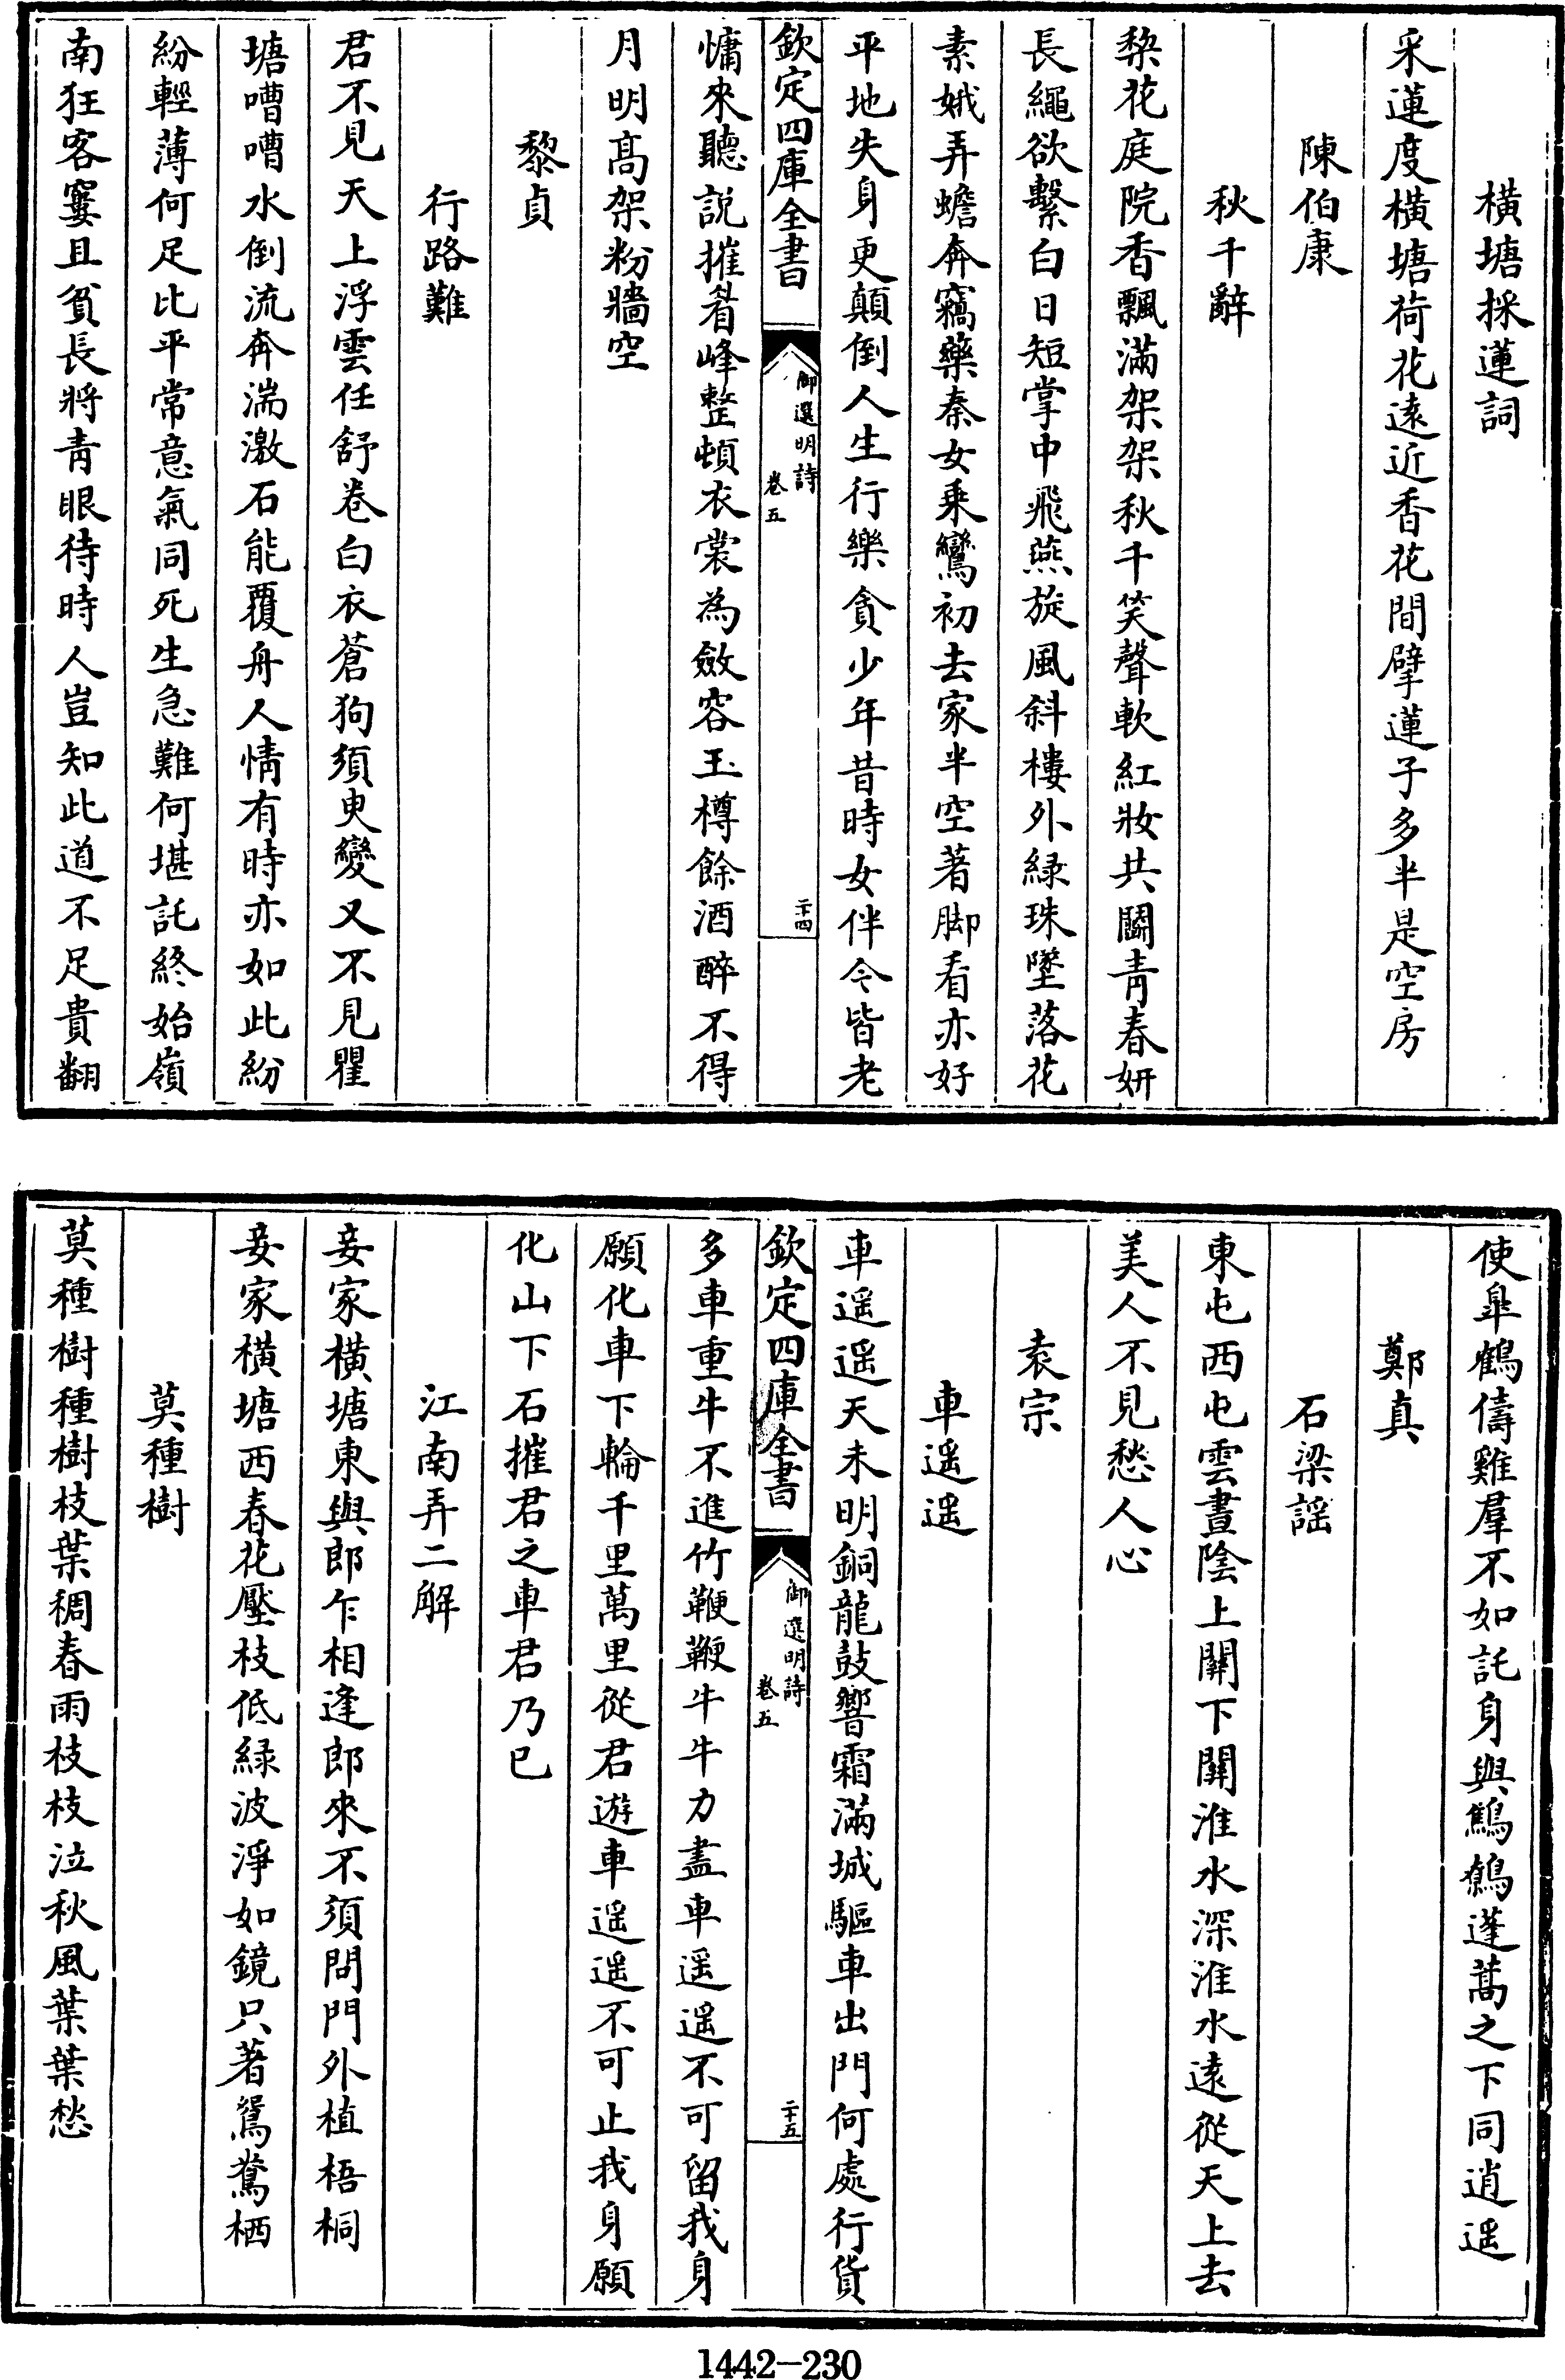 橫塘採蓮詞
采蓮度橫塘荷花遠近香花間擘蓮子多半是空房
陳伯康
秋千辭
棃花庭院香飄滿架架秋千笑聲軟紅妝共鬭青春妍
長繩欲繫白日短掌中飛燕旋風斜樓外緑珠墜落花
素娥弄蟾奔竊藥秦女乗鸞初去家半空著脚看亦好
平地失身更顛倒人生行樂貪少年昔時女伴今皆老
欽定四庫全書
御選明詩
卷五
二十四
慵來聽說摧眉峰整頓衣裳為斂容玉樽餘酒醉不得
月明髙架粉牆空
黎貞
行路難
君不見天上浮雲任舒卷白衣蒼狗須臾變又不見瞿
塘嘈嘈水倒流奔湍激石能覆舟人情有時亦如此紛
紛輕薄何足比平常意氣同死生急難何堪託終始嶺
南狂客窶且貧長將青眼待時人豈知此道不足貴翻
使臯鶴儔雞羣不如託身與鷦鷯蓬蒿之下同逍遥
鄭真
石梁謡
東屯西屯雲晝陰上關下關淮水深淮水遠從天上去
美人不見愁人心
袁宗
車遥遥
車遥遥天未明銅龍鼓響霜滿城驅車出門何處行貨
欽定四庫全書
御選明詩
卷五
二十五
多車重牛不進竹鞭鞭牛牛力盡車遥遥不可留我身
願化車下輪千里萬里從君遊車遥遥不可止我身願
化山下石摧君之車君乃已
江南弄二解
妾家橫塘東與郎乍相逢郎來不須問門外植梧桐
妾家橫塘西春花壓枝低緑波淨如鏡只著鴛鴦栖
莫種樹
莫種樹種樹枝葉稠春雨枝枝泣秋風葉葉愁
1442-230